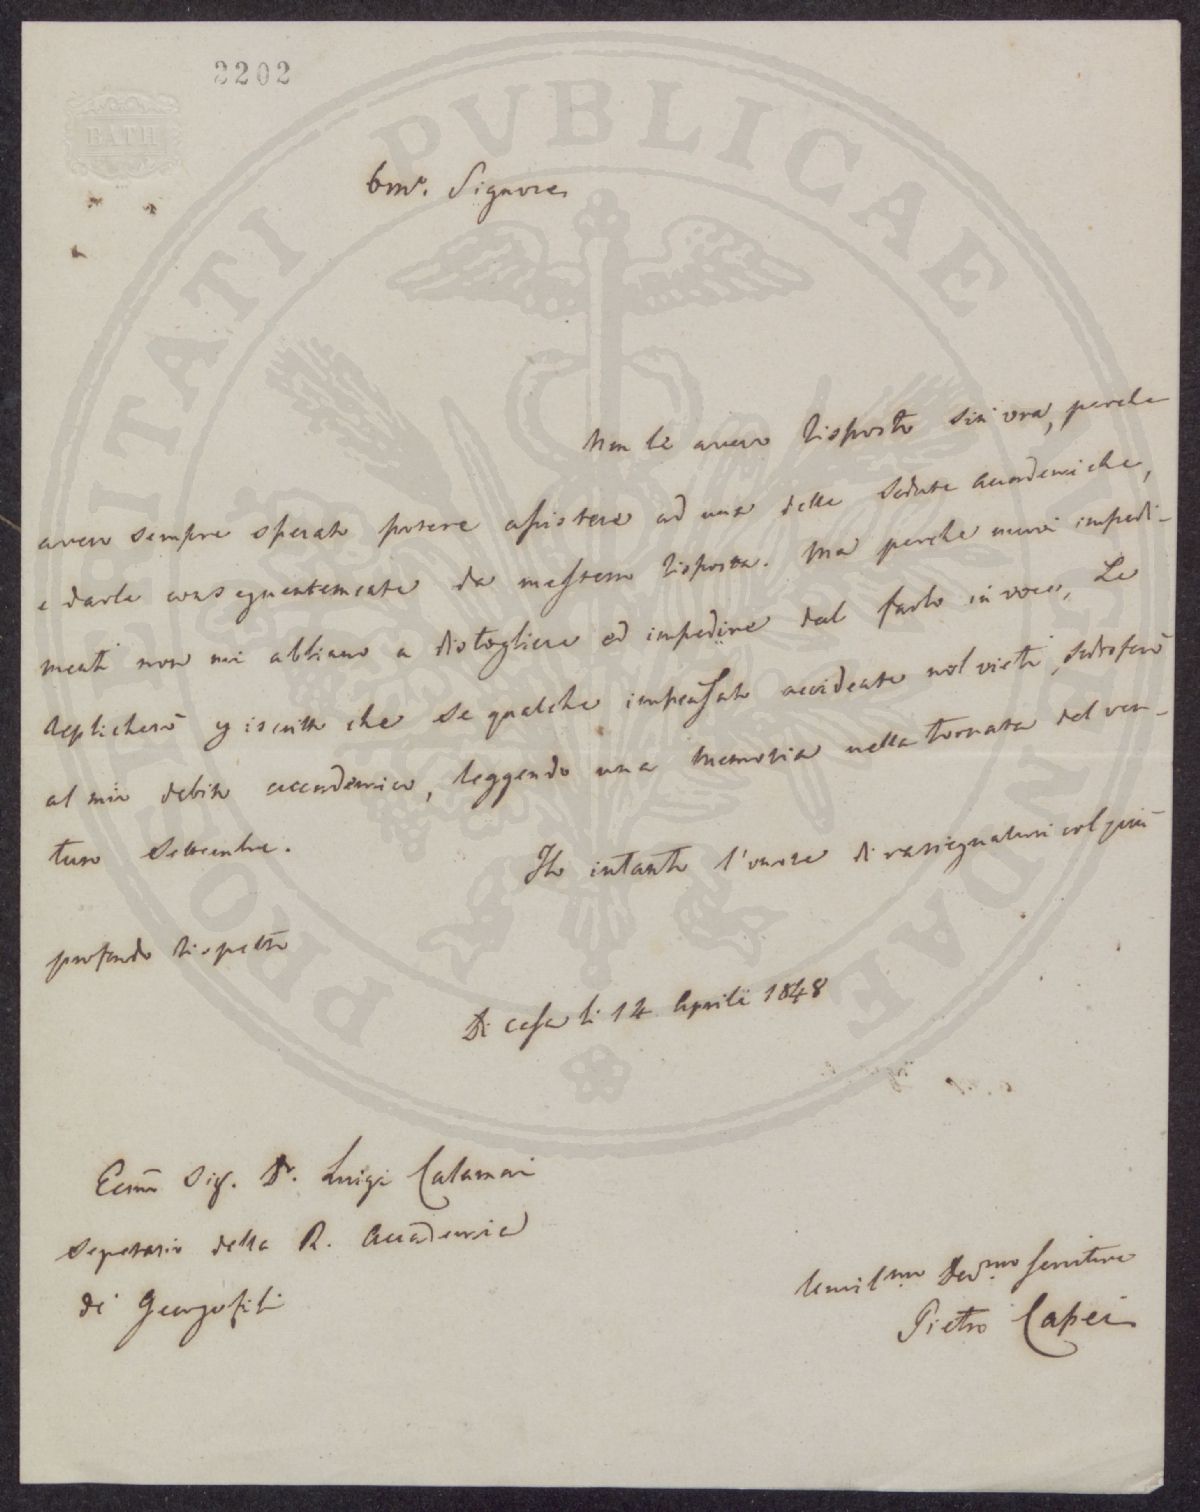 2202
BATH
PROSPERITATI PVBLICAE AVGENDAE
Emo. Signore
Non le avevo risposto sin ora, perche
avevo sempre sperato potere assistere ad una delle sedute accademiche,
e darle conseguentemente da me stesso risposta. Ma perche nuovi impedi-
menti non mi abbiano a distogliere ed impedire dal farlo in voce, Le
replicherò iscritto che se qualche impensato accidente nol vieti, sodisferò
al mio debito accademico, leggendo una memoria nella tornata del ven-
turo Settembre.
Ho intanto l'onore di rassegnarmi col più
profondo rispetto
Di casa li 14 Aprile 1848
Ecmo Sig. Dr. Luigi Calamai
Segretario della R. Accademia
dei Georgofili
Umilmo Devmo servitore
Pietro Capei